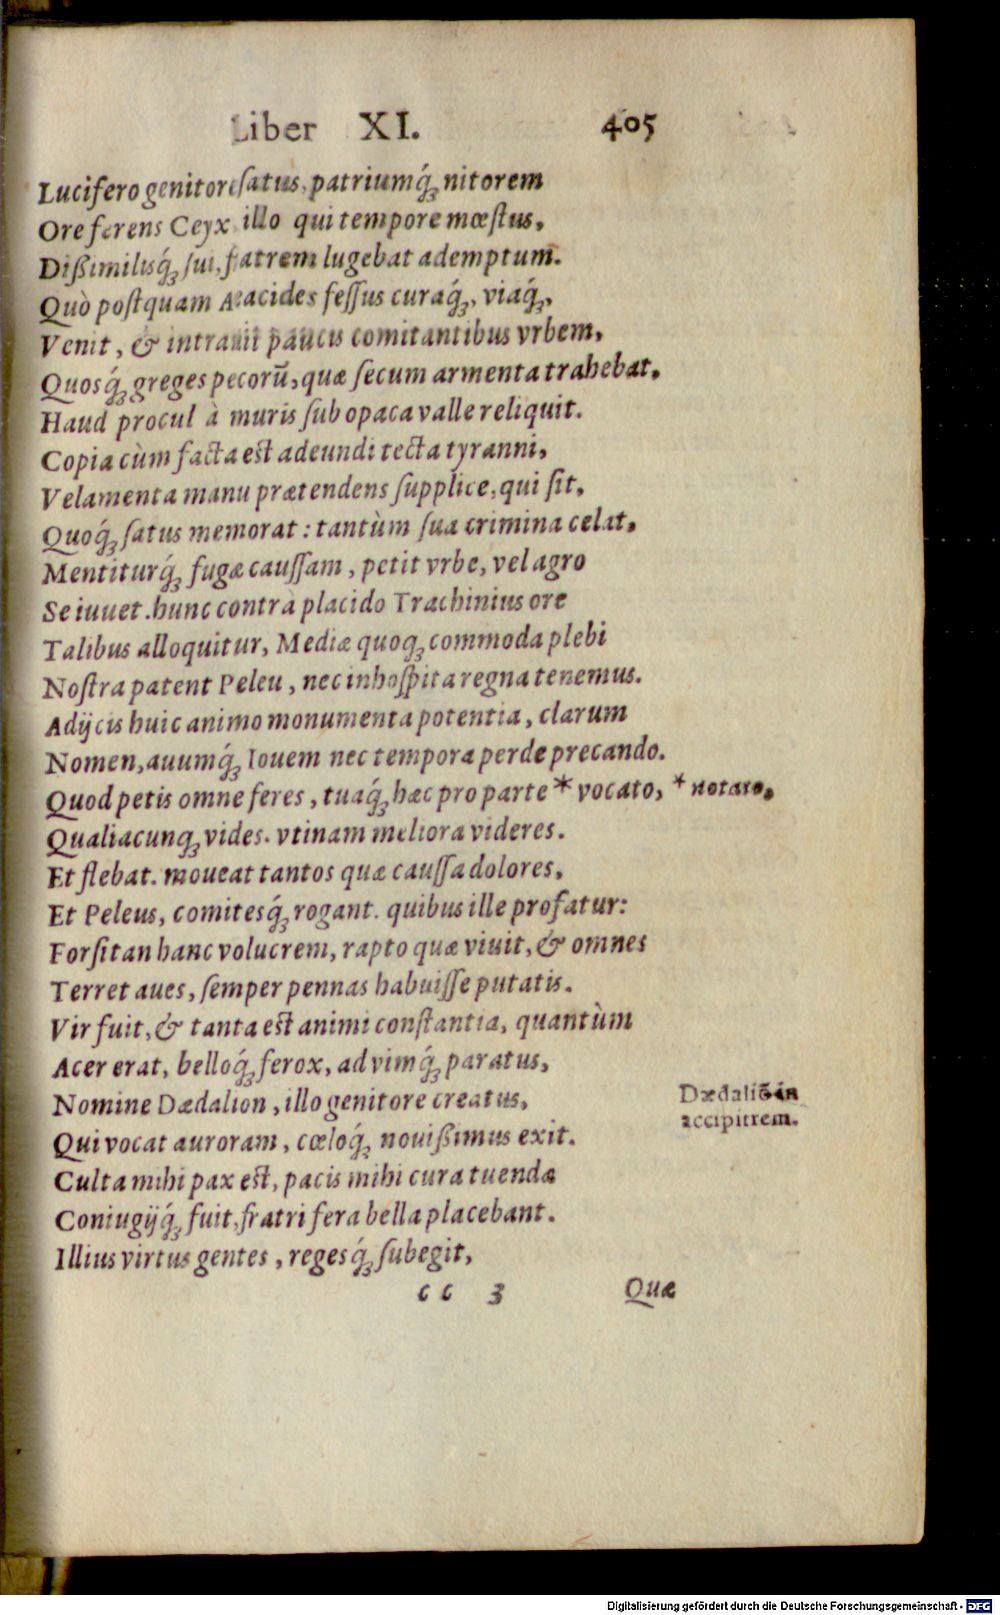 Liber XI. 405
Lucifero genitore ſatus, patriumq́; nitorem
Ore ferens Ceyx illo qui tempore mœſtus,
Dißimilisq́; ſui, fratrem lugebat ademptum.
Quò poſtquam Aeacides feſſus curaq́;, viaq́;,
Venit, & intrauit paucis comitantibus vrbem,
Quosq́; greges pecorū, quæ ſecum armenta trahebat.
Haud procul à muris ſub opaca valle reliquit.
Copia cùm facta est adeundi tecta tyranni,
Velamenta manu prætendens ſupplice, qui ſit,
Quoq́; ſatus memorat: tantùm ſua crimina celat,
Mentiturq́; fugæ cauſſam, petit vrbe, vel agro
Se iuuet. hunc contrà placido Trachinius ore
Talibus alloquitur, Mediæ quoq; commoda plebi
Noſtra patent Peleu, nec inhoſpita regna tenemus.
Adijcis huic animo monumenta potentia, clarum
Nomen, auumq́; Iouem nec tempora perde precando.
Quod petis omne feres, tuaq́; hæc pro parte * vocato, * notato,
Qualiacunq; vides. vtinam meliora videres.
Et flebat. moueat tantos quæ cauſſa dolores,
Et Peleus, comitesq́; rogant. quibus ille profatur:
Forſitan hanc volucrem, rapto quæ viuit, & omnes
Terret aues, ſemper pennas habuiſſe putatis.
Vir fuit, & tanta est animi conſtantia, quantùm
Acer erat, belloq́; ferox, ad vimq́; paratus,
Nomine Dædalion, illo genitore creatus,
Dædaliō in
accipitrem.
Qui vocat auroram, cœloq́; nouißimus exit.
Culta mihi pax est, pacis mihi cura tuendæ
Coniugijq́; fuit, fratri fera bella placebant.
Illius virtus gentes, regesq́; ſubegit,
c c 3 Quæ
Digitalisierung gefördert durch die Deutsche Forschungsgemeinschaft - DFG